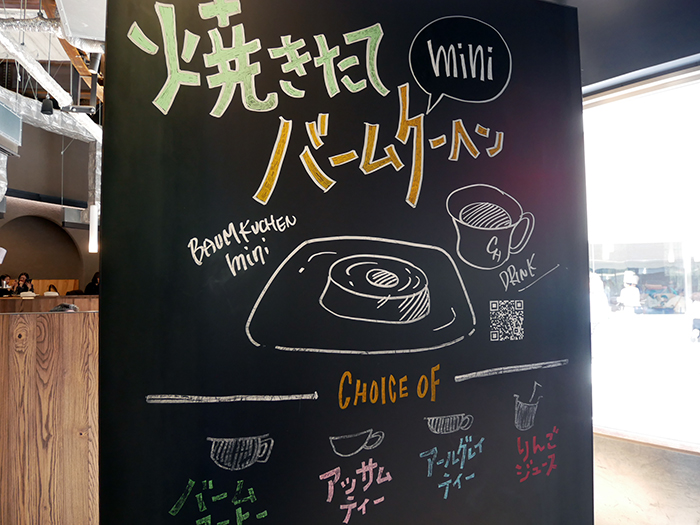 焼きたて
mini
バームクーヘン
BAUMKUCHEN
mini
DRINK
CHOICE OF
バーム
アッサム
ティー
アールグレイ
ティー
りんご
ジュース